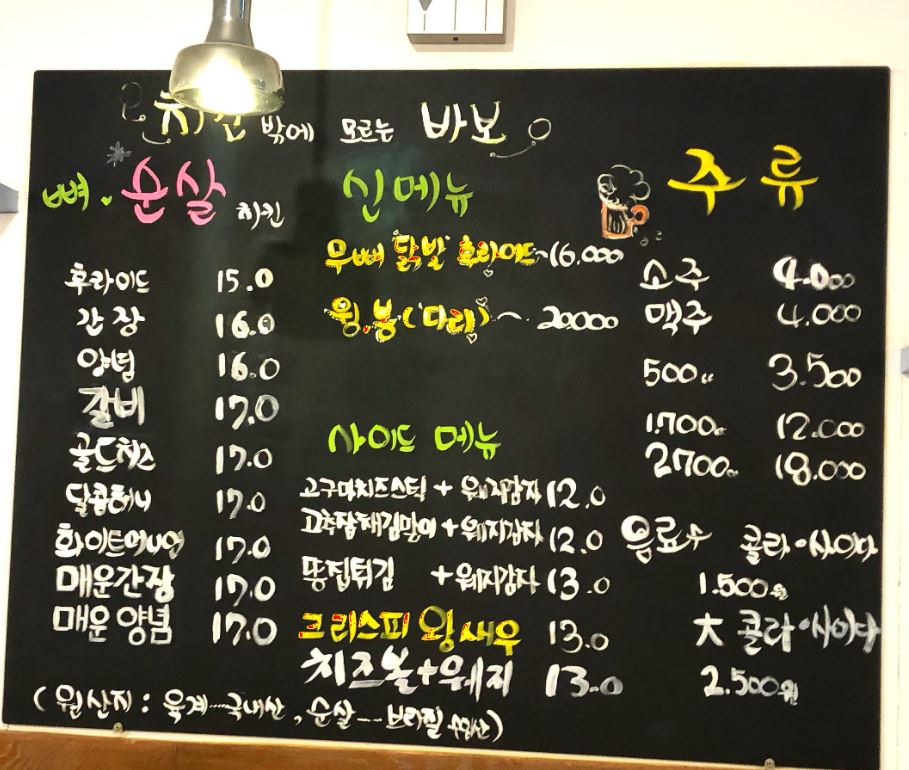 치킨 밖에 모르는 바보
뼈. 순살 치킨
후라이드 15.0
간장 16.0
양념 16.0
갈비 17.0
골드치즈 17.0
달콤허니 17.0
화이트어니언 17.0
매운간장 17.0
매운 양념 17.0
신메뉴
무뼈 닭발 후라이드~16.000
윙.봉(다리)~ 20000
사이드 메뉴
고구마치즈스틱 + 웨지감자 12.0
고추잡채김말이+웨지감자 12.0
똥집튀김 +웨지감자 13.0
크리스피 왕새우 13.0
치즈볼+웨지 13.0
주류
소주 4.000
맥주 4.000
500cc 3.500
1.700cc 12.000
2700cc 18.000
음료수 콜라·사이다
1.500원
大 콜라·사이다
2.500원
(원산지: 육계...국내산, 순살---브라질 수입산)